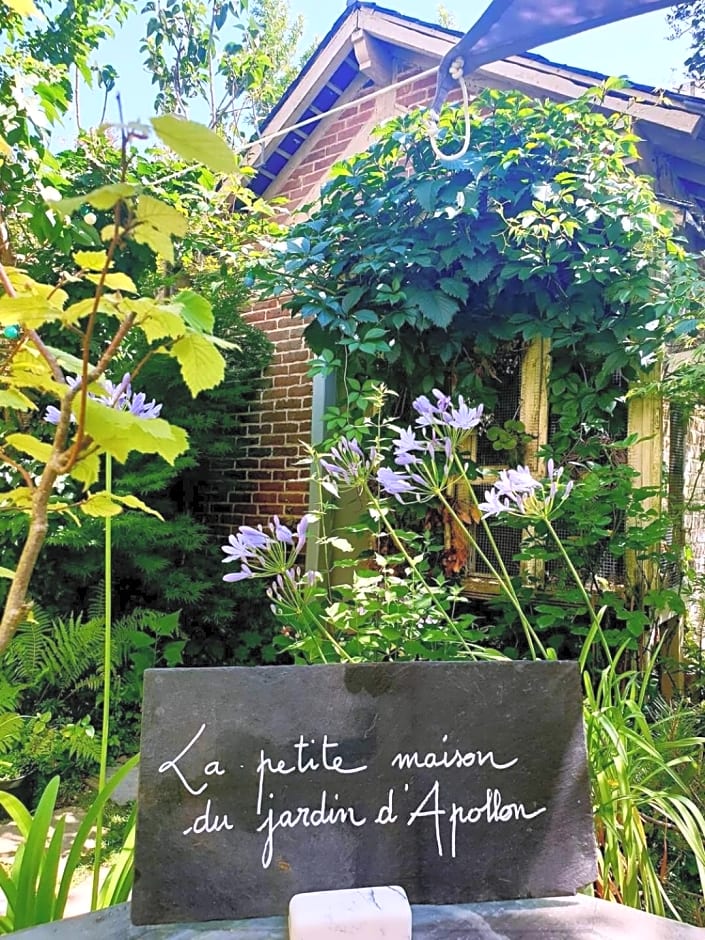 La petite maison
du jardin d'Apollon